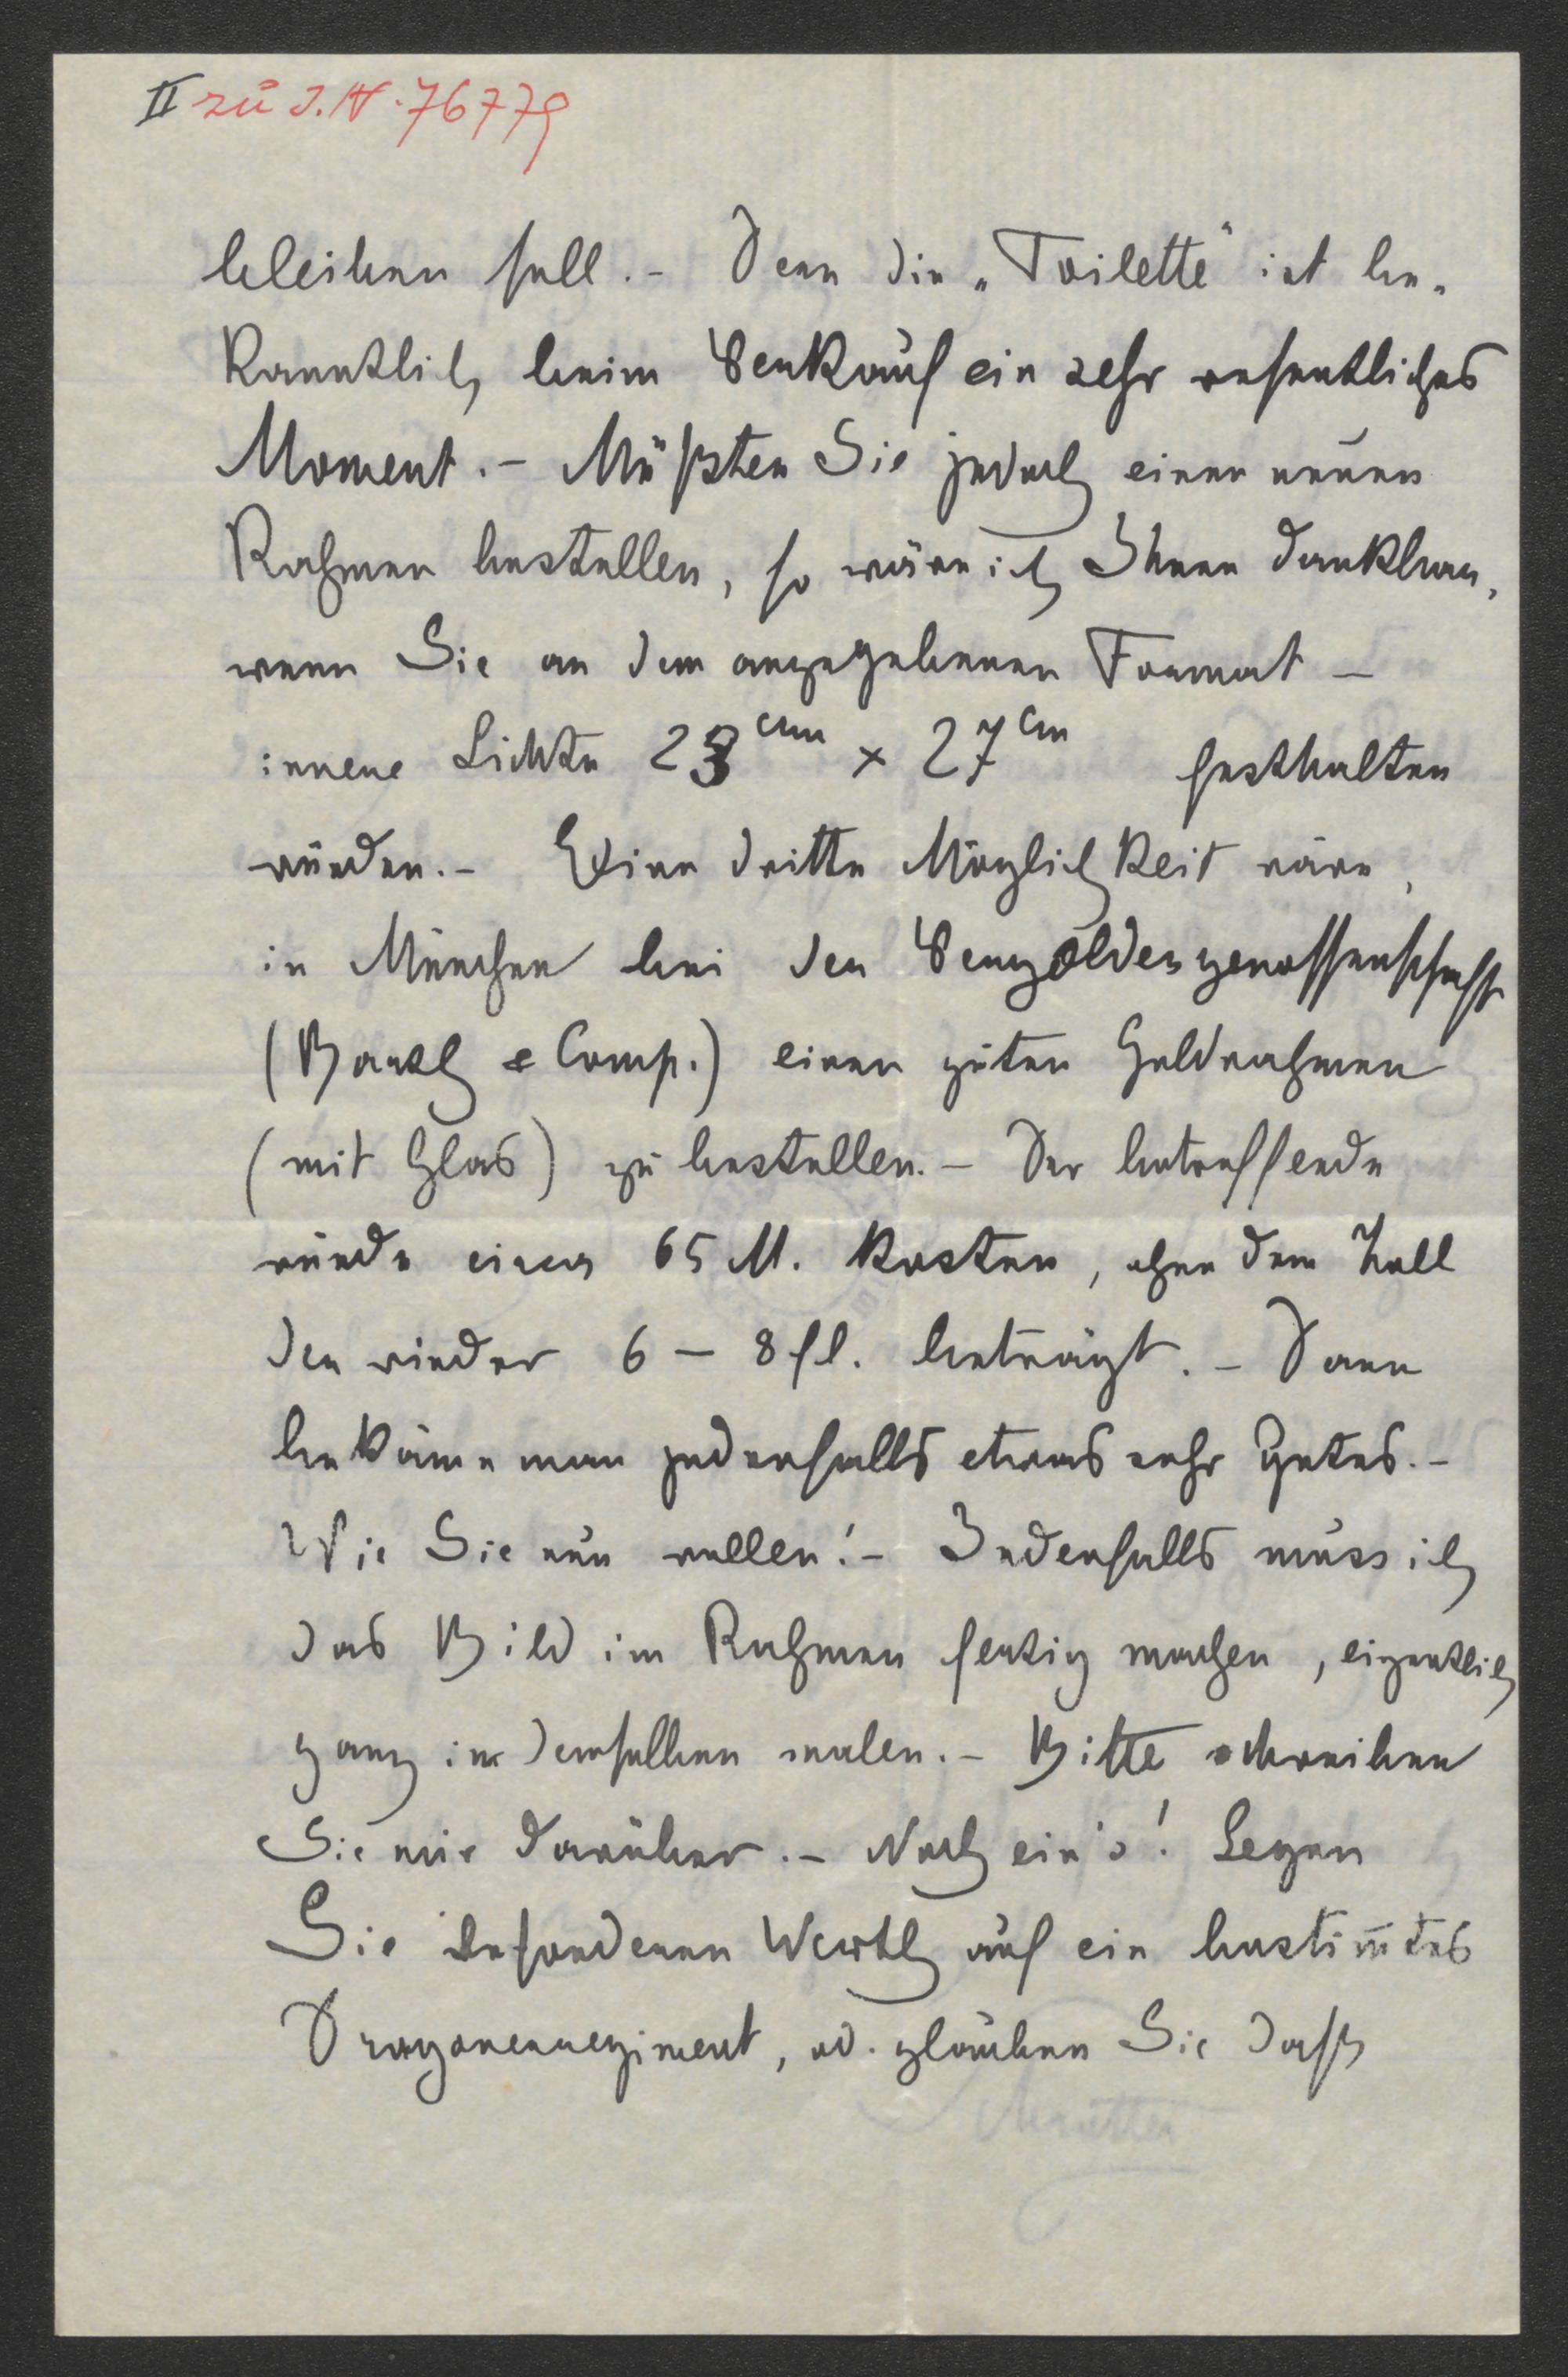 II zu I.N. 76779
bleiben soll. – Denn die „Toilette“ ist be-
kanntlich beim Verkauf ein sehr wesentliches
Moment. – Müßten Sie jedoch einen neuen
Rahmen bestellen, so wäre ich Ihnen dankbar,
wenn Sie an dem angegebenen Format –
innere Lichte 23 cm × 27 cm festhalten
würden. – Eine dritte Möglichkeit wäre,
in München bei der Vergoldergenossenschaft
(Barth & Comp.) einen guten Goldrahmen
(mit Glas) zu bestellen. – Der betreffende
würde circa 65 M. kosten, ohne dem Zoll
der wieder 6 – 8 fl. beträgt. – Dann
bekäme man jedenfalls etwas sehr Gutes. –
Wie Sie nun wollen! – Jedenfalls muss ich
das Bild im Rahmen fertig machen, eigentlich
ganz in demselben malen. – Bitte schreiben
Sie mir darüber. – Noch ein's! Legen
Sie besonderen Werth auf ein bestim̄tes
Dragonerregiment, od. glauben Sie daß